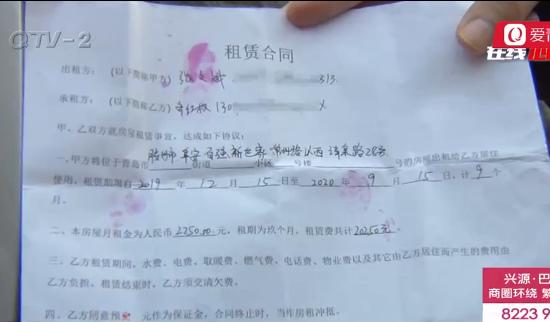 QTV-2
爱青
在线
租赁合同
出租方：（以下简称甲方） 313
承租方：（以下简称乙方） 130 X
甲、乙双方就房屋租赁事宜，达成如下协议：
一、甲方将位于青岛市 街道 小区 号楼 号的房屋出租给乙方居住
使用，租赁期限自 2019 年 12 月 15 日至 2020 年 9 月 15 日，计 9 个
月。
二、本房屋月租金为人民币 2250.00 元，租期为玖个月，租赁费共计 20250元。
三、乙方租赁期间，水费、电费、取暖费、燃气费、电话费、物业费以及其它由乙方居住而产生的费用由
乙方负担。租赁结束时，乙方须交清欠费。
四、乙方同意预 元作为保证金，合同终止时，当作房租冲抵。
兴源·巴
商圈环绕 繁
8223 9